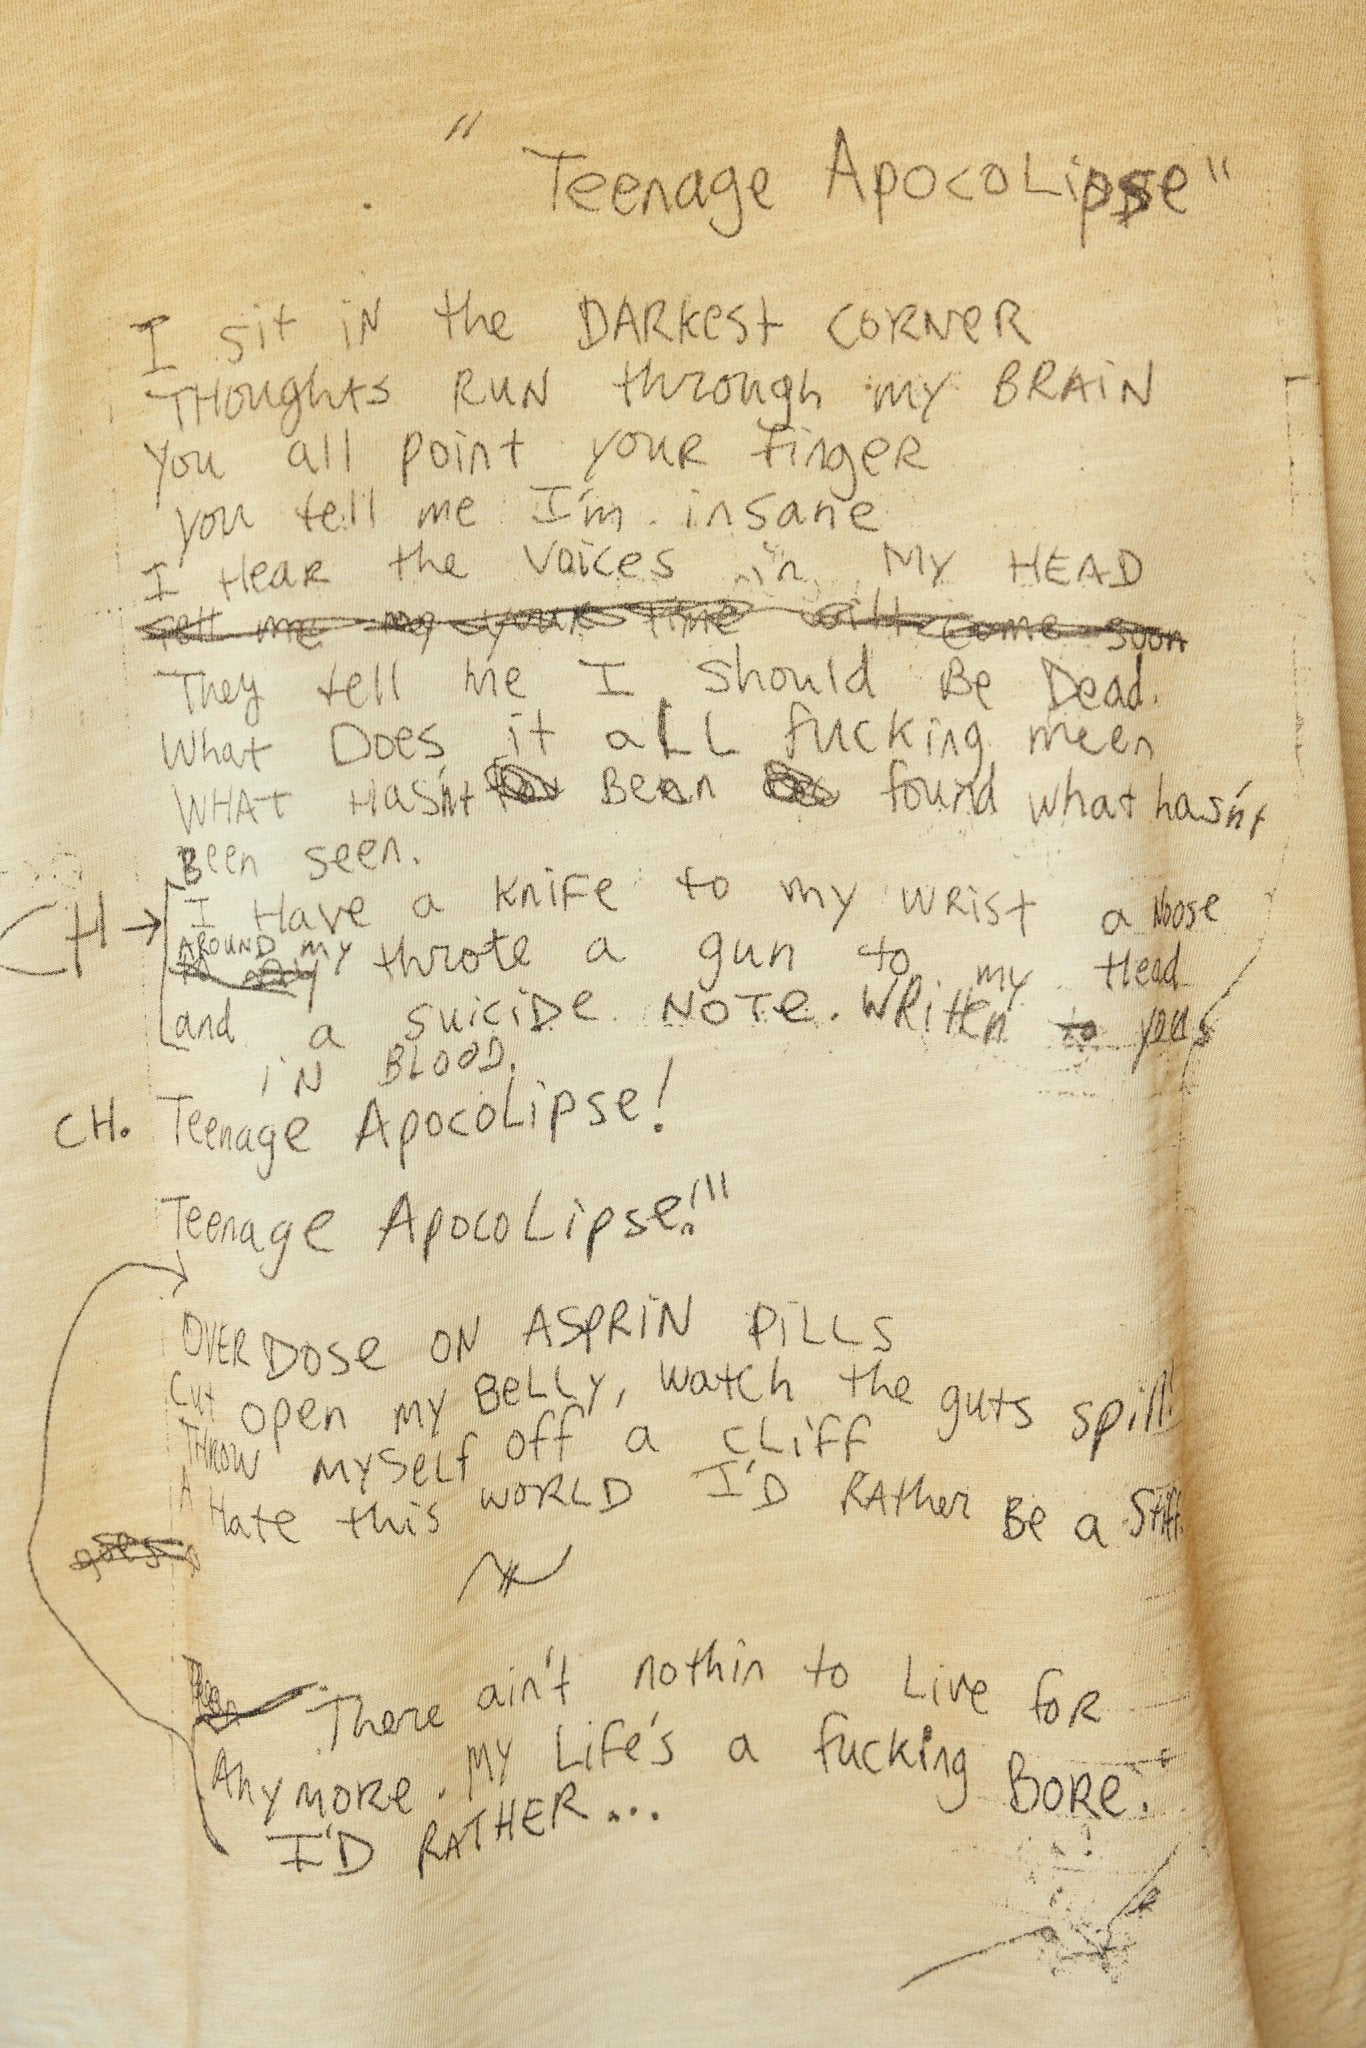 "Teenage Apocolipse"
I sit iN the DARKest CORNeR
THoughts RUN through my BRAiN
You all point youR finger
you tell me I'm insane
I HeaR the Voices in MY HEAD
Tell me my your time will come soon
They tell me I should Be Dead.
What Does it aLL fucking meen
WHAt Hasn't Been found what hasn't
Been seen.
CH → I Have a KNiFe to my WRist a Noose
AROUND my throte a gun to my Head
and a SuiciDe NOTe. WRitten to you
iN BLOOD.
CH. Teenage ApocoLipse!
Teenage ApocoLipse!"
OVERDose ON ASPRiN PiLLS
Cut open my BeLLy, watch the guts spill!
THROW myself off a CLiff
A Hate this WORLD I'D RAther Be a Stiff.
There ain't nothin to Live foR
AnymoRe. My Life's a fucking BoRe!
I'D RATHER...